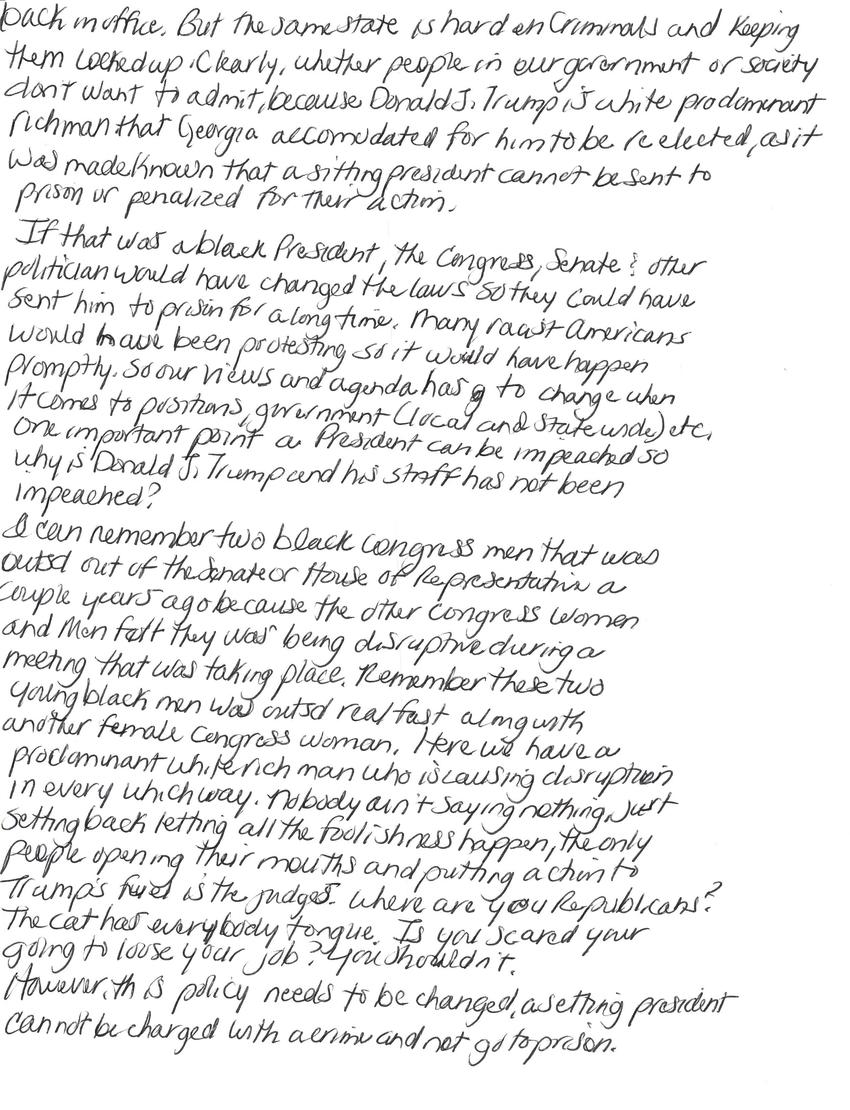 back in office. But the same state is hard on Criminals and Keeping
them Locked up. Clearly, whether people in our government or society
don't want to admit, because Donald J. Trump is white prodominant
richman that Georgia accomodated for him to be re elected, as it
was made known that a sitting president cannot be sent to
prison or penalized for their action.
If that was a black President, the Congress, Senate & other
politician would have changed the laws so they could have
sent him to prison for a long time. Many racist Americans
would have been protesting so it would have happen
promptly. So our views and agenda has to change when
it comes to positions, government (local and statewide) etc.
One important point a President can be impeached so
why is Donald J. Trump and his staff has not been
impeached?
I can remember two black congress men that was
outsd out of the Senate or House of Representative a
couple years ago because the other congress women
and Men felt they was being disruptive during a
meeting that was taking place. Remember these two
young black men was outsd real fast along with
another female congress woman. Here we have a
prodominant white rich man who is causing disruption
in every which way. Nobody ain't saying nothing, just
setting back letting all the foolishness happen, the only
people opening their mouths and putting action to
Trump's is the judges. Where are you Republicans?
The cat has everybody tongue. Is you scared your
going to loose your job? You shouldn't.
However, this policy needs to be changed, a setting president
cannot be charged with a crime and not go to prison.